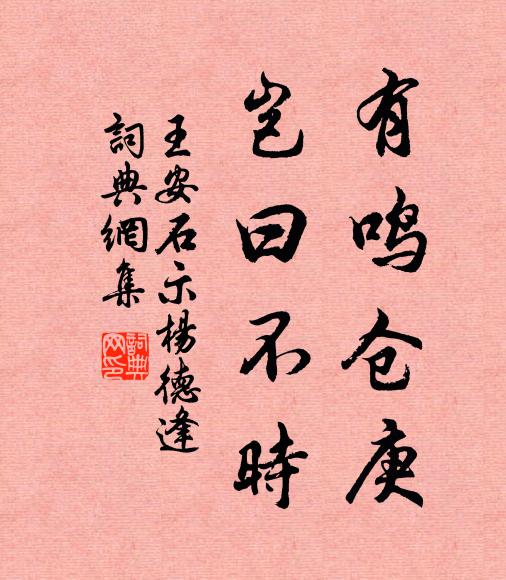 有鸣仓庚
岂曰不時
王安石示楊德逢
詞典網集
詞典网印